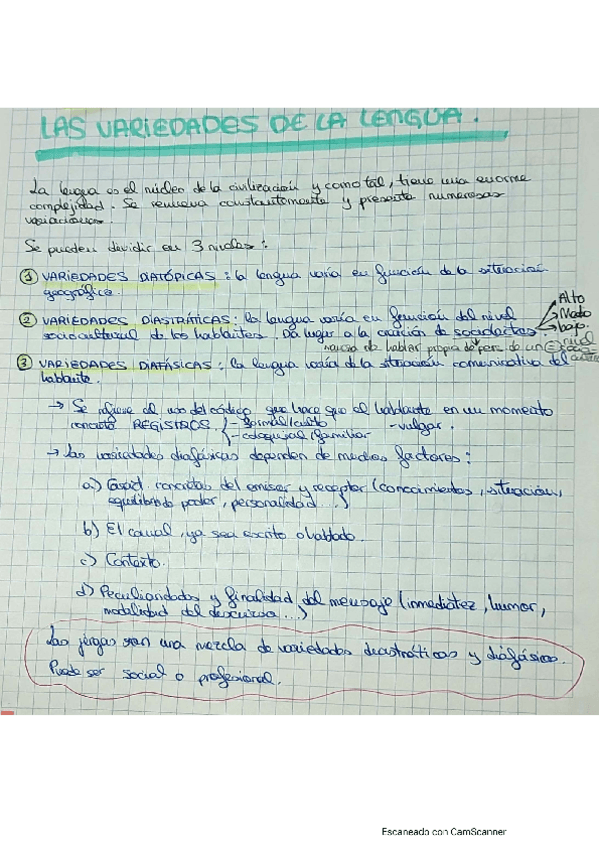 LAS VARIEDADES DE LA LENGUA.
La lengua es el núcleo de la civilización y como tal, tiene una enorme
complejidad. Se renueva constantemente y presenta numerosas
variaciones.
Se pueden dividir en 3 niveles:
① VARIEDADES DIATÓPICAS: la lengua varía en función de la situación
geográfica.
② VARIEDADES DIASTRÁTICAS: la lengua varía en función del nivel
sociocultural de los hablantes. Da lugar a la creación de sociolectos
Alto
Medio
bajo.
manera de hablar propia de pers. de un nivel
③ VARIEDADES DIAFÁSICAS: la lengua varía de la situación comunicativa del
hablante.
→ Se refiere al uso del código que hace que el hablante en un momento
concreto REGISTROS. - formal/culto - vulgar.
- coloquial/familiar
→ Las variedades diafásicas dependen de medios factores:
a.) concretas del emisor y receptor (conocimientos, situación,
equilibrando poder, personalidad ...)
b) El canal, ya sea escrito o hablado.
c) Contexto.
d) Peculiaridades y finalidad del mensaje (inmediatez, humor,
modalidad del discurso ...)
Las jergas son una mezcla de variedades diastráticas y diafásicas.
Puede ser social o profesional.
Escaneado con CamScanner